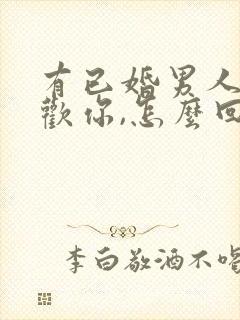 有已婚男人
歡你,怎麼回
李白敬酒不喝